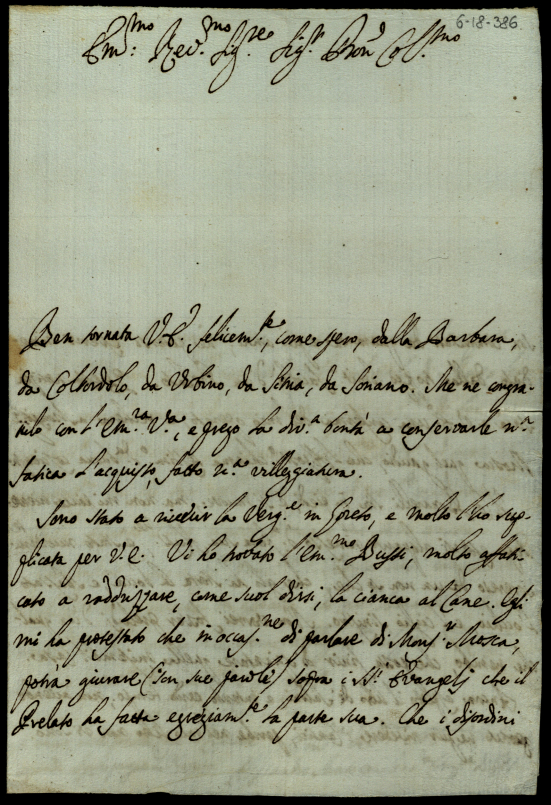 6-18-386.
Em.mo Rev.mo Sig.re Sig.r Pron Col.mo
Ben tornata V.E. felicem.te, come spero, dalla Barbara,
da Colbordolo, da Urbino, da da Soriano. Me ne congra-
tulo con l'Em.za V.a, e prego la div.a bontà a conservarle n.a
fatica l'acquisto, fatto villeggiatura.
Sono stato a riverir la Verg.e in Loreto, e molto l'ho sup-
plicata per V.E. Vi ho trovato l'Em.mo Bussi, molto affati-
cato a raddrizzare, come suol dirsi, la cianca al Cane. Egli
mi ha protestato che in occas.ne di parlare di Mons.r Mosca,
potrà giurare (son sue parole) sopra i SS.i Evangelj che il
Prelato ha fatta egregiam.te la parte sua. Che i disordini